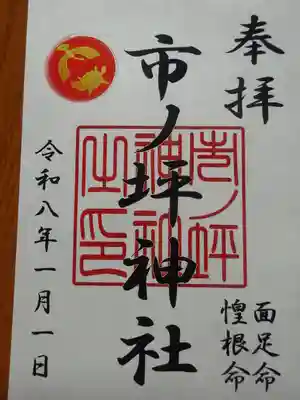 奉拝
市ノ坪神社
市ノ坪
神社
之印
面足命
惶根命
令和八年一月一日